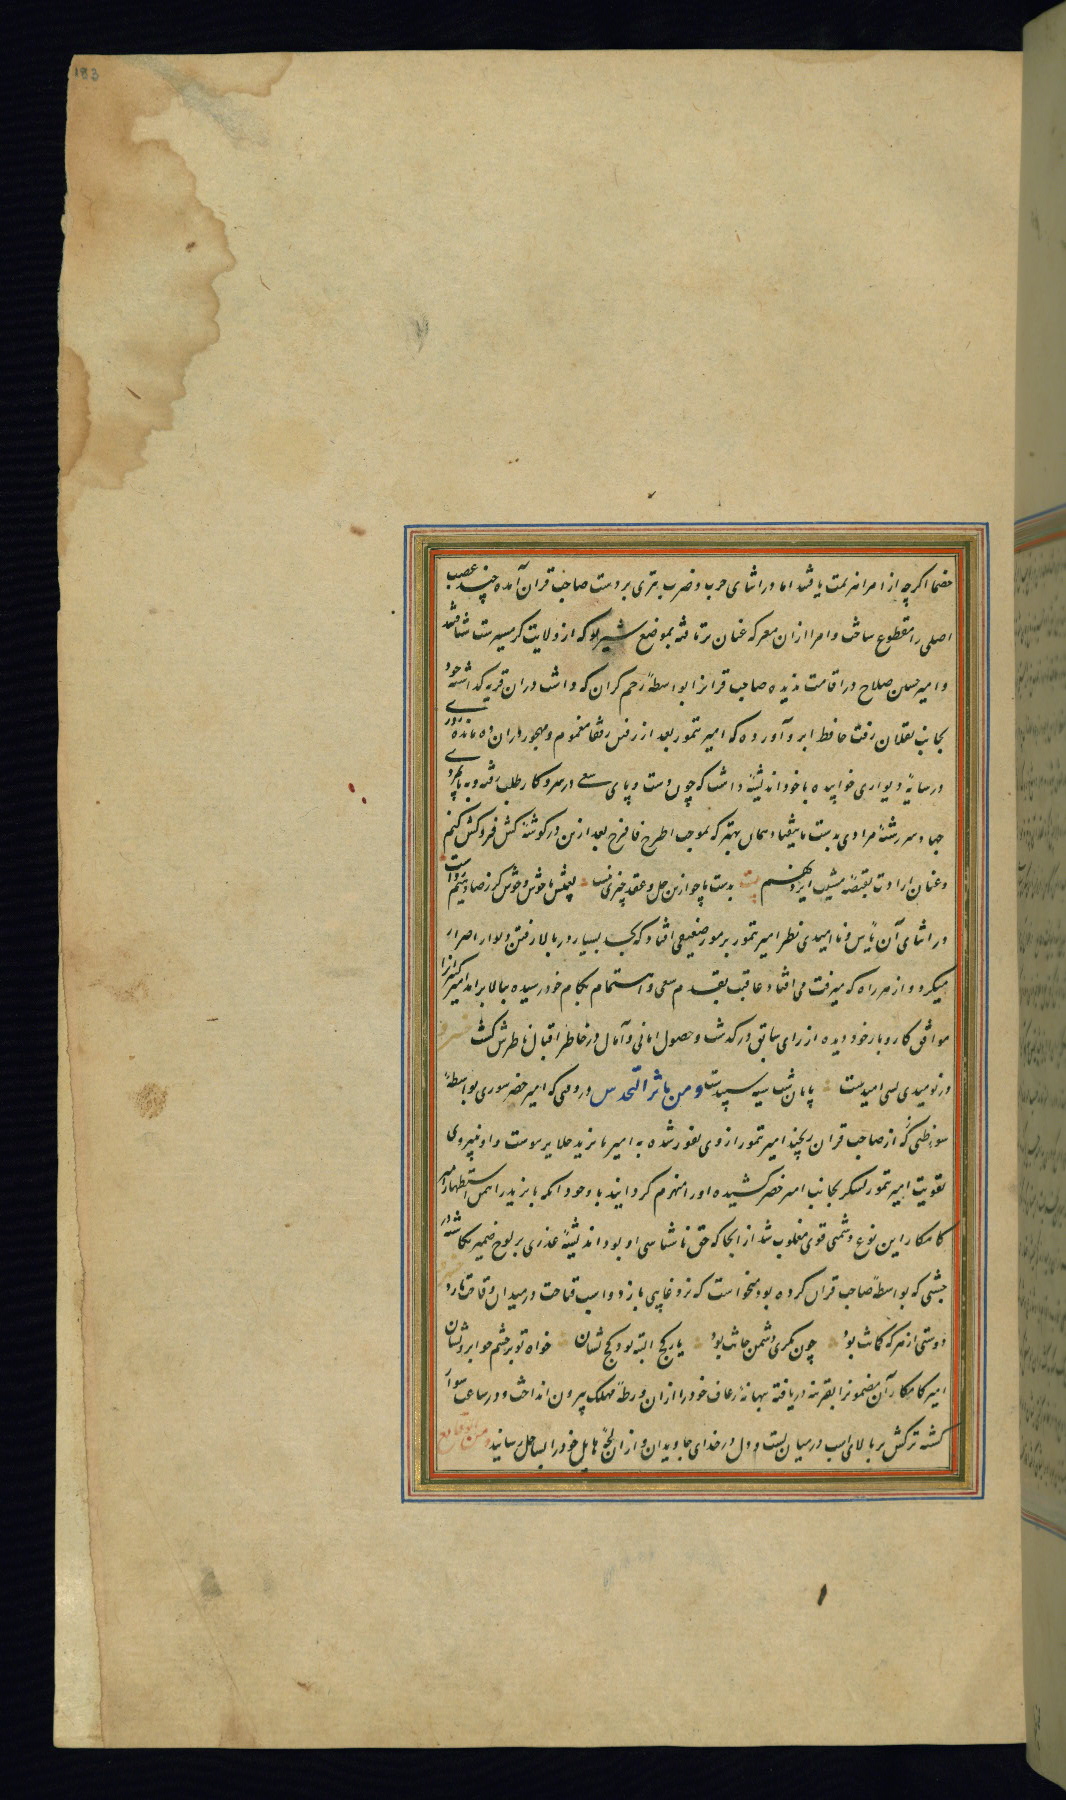 183
خصما اگرچه از امرا هزیمت یافتند اما در اثنای حرب و ضرب تیری بر دست صاحب قران آمده چند عصب
اصلی را مقطوع ساخت و امرا ازان معرکه عنان برتافته بموضع شیرلو که از ولایت گرمسیرست شتافتند
و امیر حسین صلاح در اقامت ندیده صاحب قرانرا بواسطهٔ زخم گران که داشت دران قریه گذاشته خود
بجانب بقلان رفت حافظ ابرو آورده که امیر تمور بعد از رفتن رفقا مغموم و مهجور دران ده مانده روزی
در سایهٔ دیواری خوابیده با خود اندیشهٔ داشت که چون دست و پای سعی در سر و کار طلب رفته و به پایمردی
جهاد سررشتهٔ مرادی بدست نایفتاد همان بهتر که بموجب اطرح فافرح بعد ازین در گوشهٔ کش فروکش کنیم
و عنان ارادت بقبضهٔ مشیت ایزد نهیم بیت بدست ما چو ازین حل و عقد چیزی نیست بعیش ناخوش و خوش گر رضا دهیم رواست
در اثنای آن یأس و ناامیدی نظر امیر تمور بر مور ضعیفی افتاد که بجد بسیار در بالا رفتن دیوار اصرار
میکرد و از هر راه که میرفت می افتاد عاقبت بقدم سعی و اهتمام بکام خود رسیده ببالا برامد امیر کبیر انرا
موافق کار و بار خود دیده از رای سابق درگذشت و حصول امانی و آمال در خاطر اقبال ناظرش گشت
در نومیدی بسی امیدست پایان شب سیه سپیدست ومن مآثر التحدس در وقتی که امیر خضر یسوری بواسطهٔ
سوءظنی که از صاحب قران رنجید امیر تمور از وی نفور شده به امیر بایزید جلایر پیوست و او بنیروی
تقویت امیر تمور لشکر بجانب امیر خضر کشیده او را منهزم گردانید با وجود آنکه بایزید را بیمن استظهار امیر
کامکار این نوع دشمنی قوی مغلوب شد از انجا که حق ناشناسی او بود اندیشهٔ غدری بر لوح ضمیر نگاشته در
جشنی که بواسطهٔ صاحب قران کرده بود میخواست که نرد غایبی بازد و اسب قباحت در میدان وقاحت تازد
دوستی از هر که گمانت بود چون نگری دشمن جانت بود یار کج البته بود کج نشان خواه تو بر چشم چو ابرو نشان
امیر کامکار آن مضمونرا بقرینه دریافته ببهانهٔ رعاف خود را ازان ورطهٔ مهلک بیرون انداخت و در ساعت سوار
گشته ترکش بر بالای اسب در میان بست و دل در خدای جاویدان و ازان لجهٔ هایل خود را بساحل رسانید ومن الوقایع